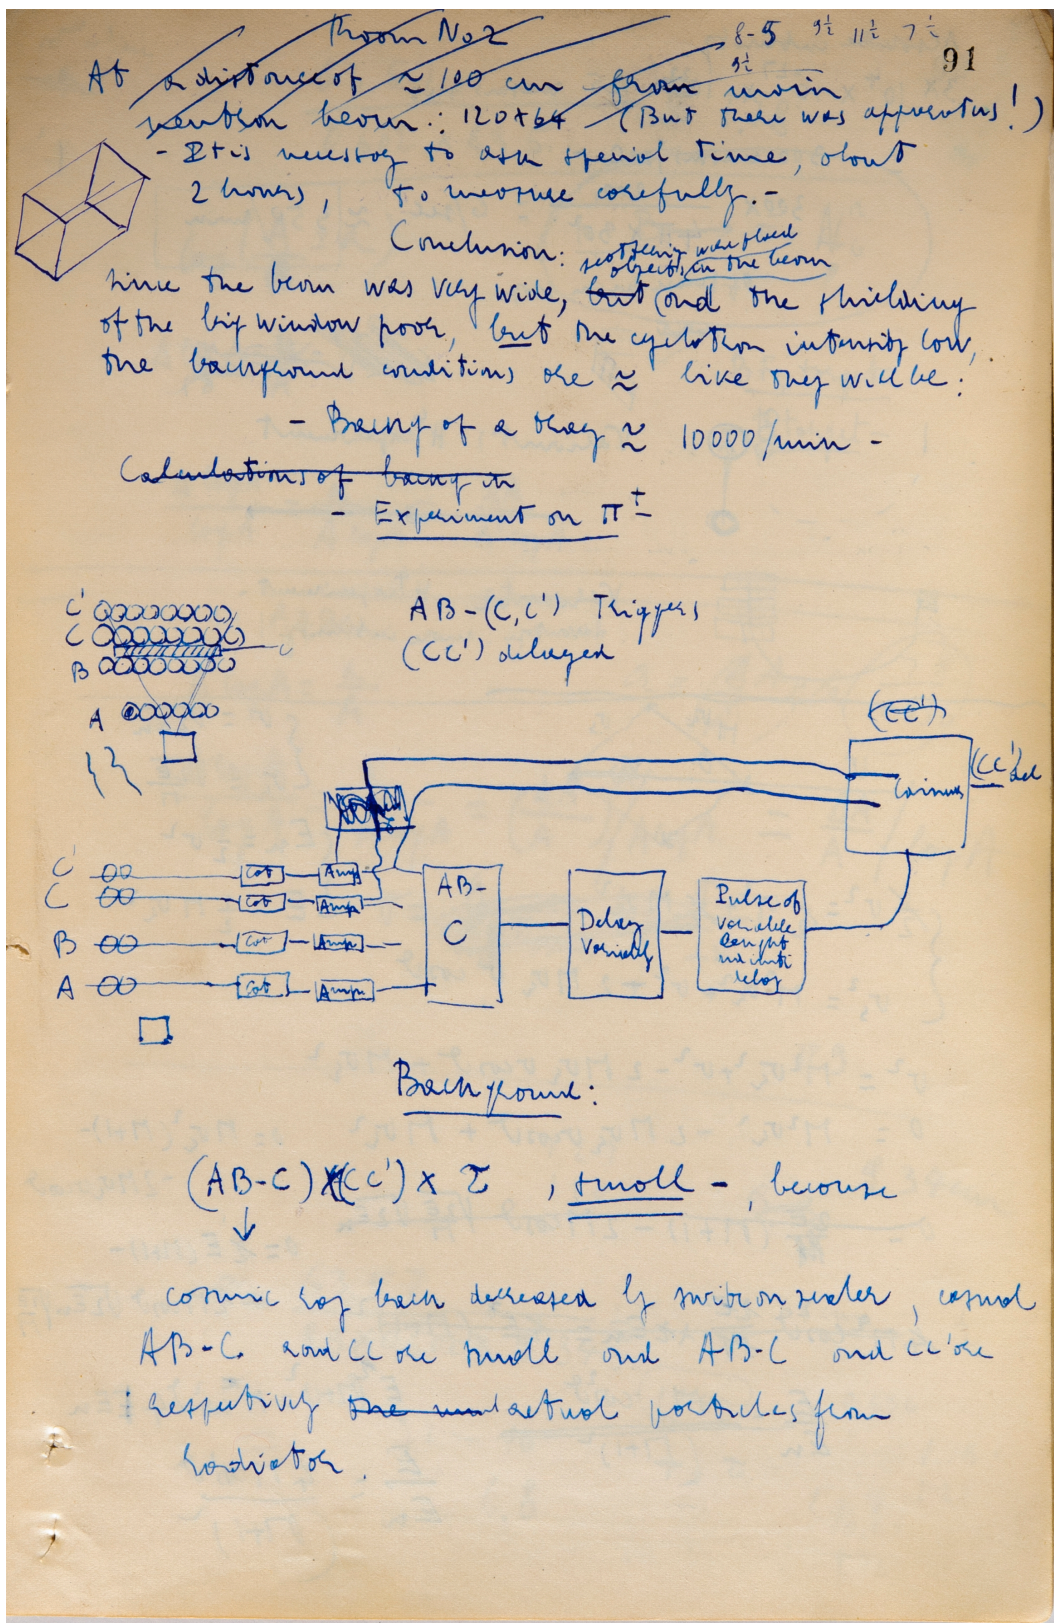 Room No 2
8-5 9½ 11½ 7½
9½
91
At a distance of ≃ 100 cm from main
neutron beam: 120×64 (But there was apparatus!)
- It is necessary to ask special time, about
2 hours, to measure carefully. -
Conclusion:
scattering were placed
objects in the beam
since the beam was very wide, but and the shielding
of the big window poor, but the cyclotron intensity low,
the background conditions are ≃ like they will be:
- Backg of a tray ≃ 10000/min -
Calculations of backg in
- Experiment on π±
C'
C
B
A
AB-(C,C') Triggers
(CC') delayed
(CC')
(CC')del
C' Cat Amp
C Cat Amp
B Cat Amp
A Cat Amp
AB-
C
Delay
Variable
Pulse of
variable
lenght
delay
Background:
(AB-C) × (CC') × τ , small - , because
cosmic ray back decreased by scaler, casual
AB-C and CC are small and AB-C and CC' are
respectively the actual particles from
radiator.